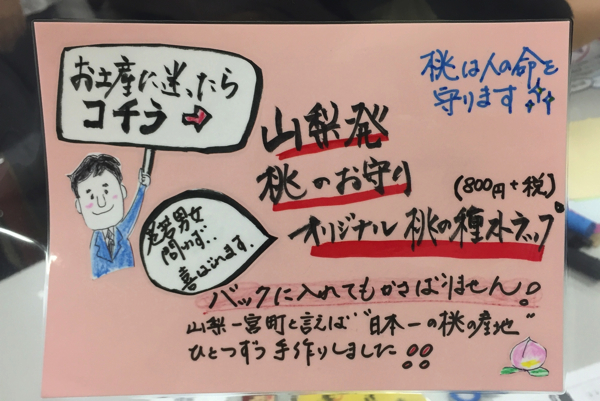 お土産に迷ったら
コチラ
桃は人の命を
守ります
山梨発
桃のお守り
(800円+税)
オリジナル桃の種ストラップ
老若男女
問わず..
喜ばれます。
バックに入れてもかさばりません!
山梨一宮町と言えば"日本一の桃の産地"
ひとつずつ手作りしました!!